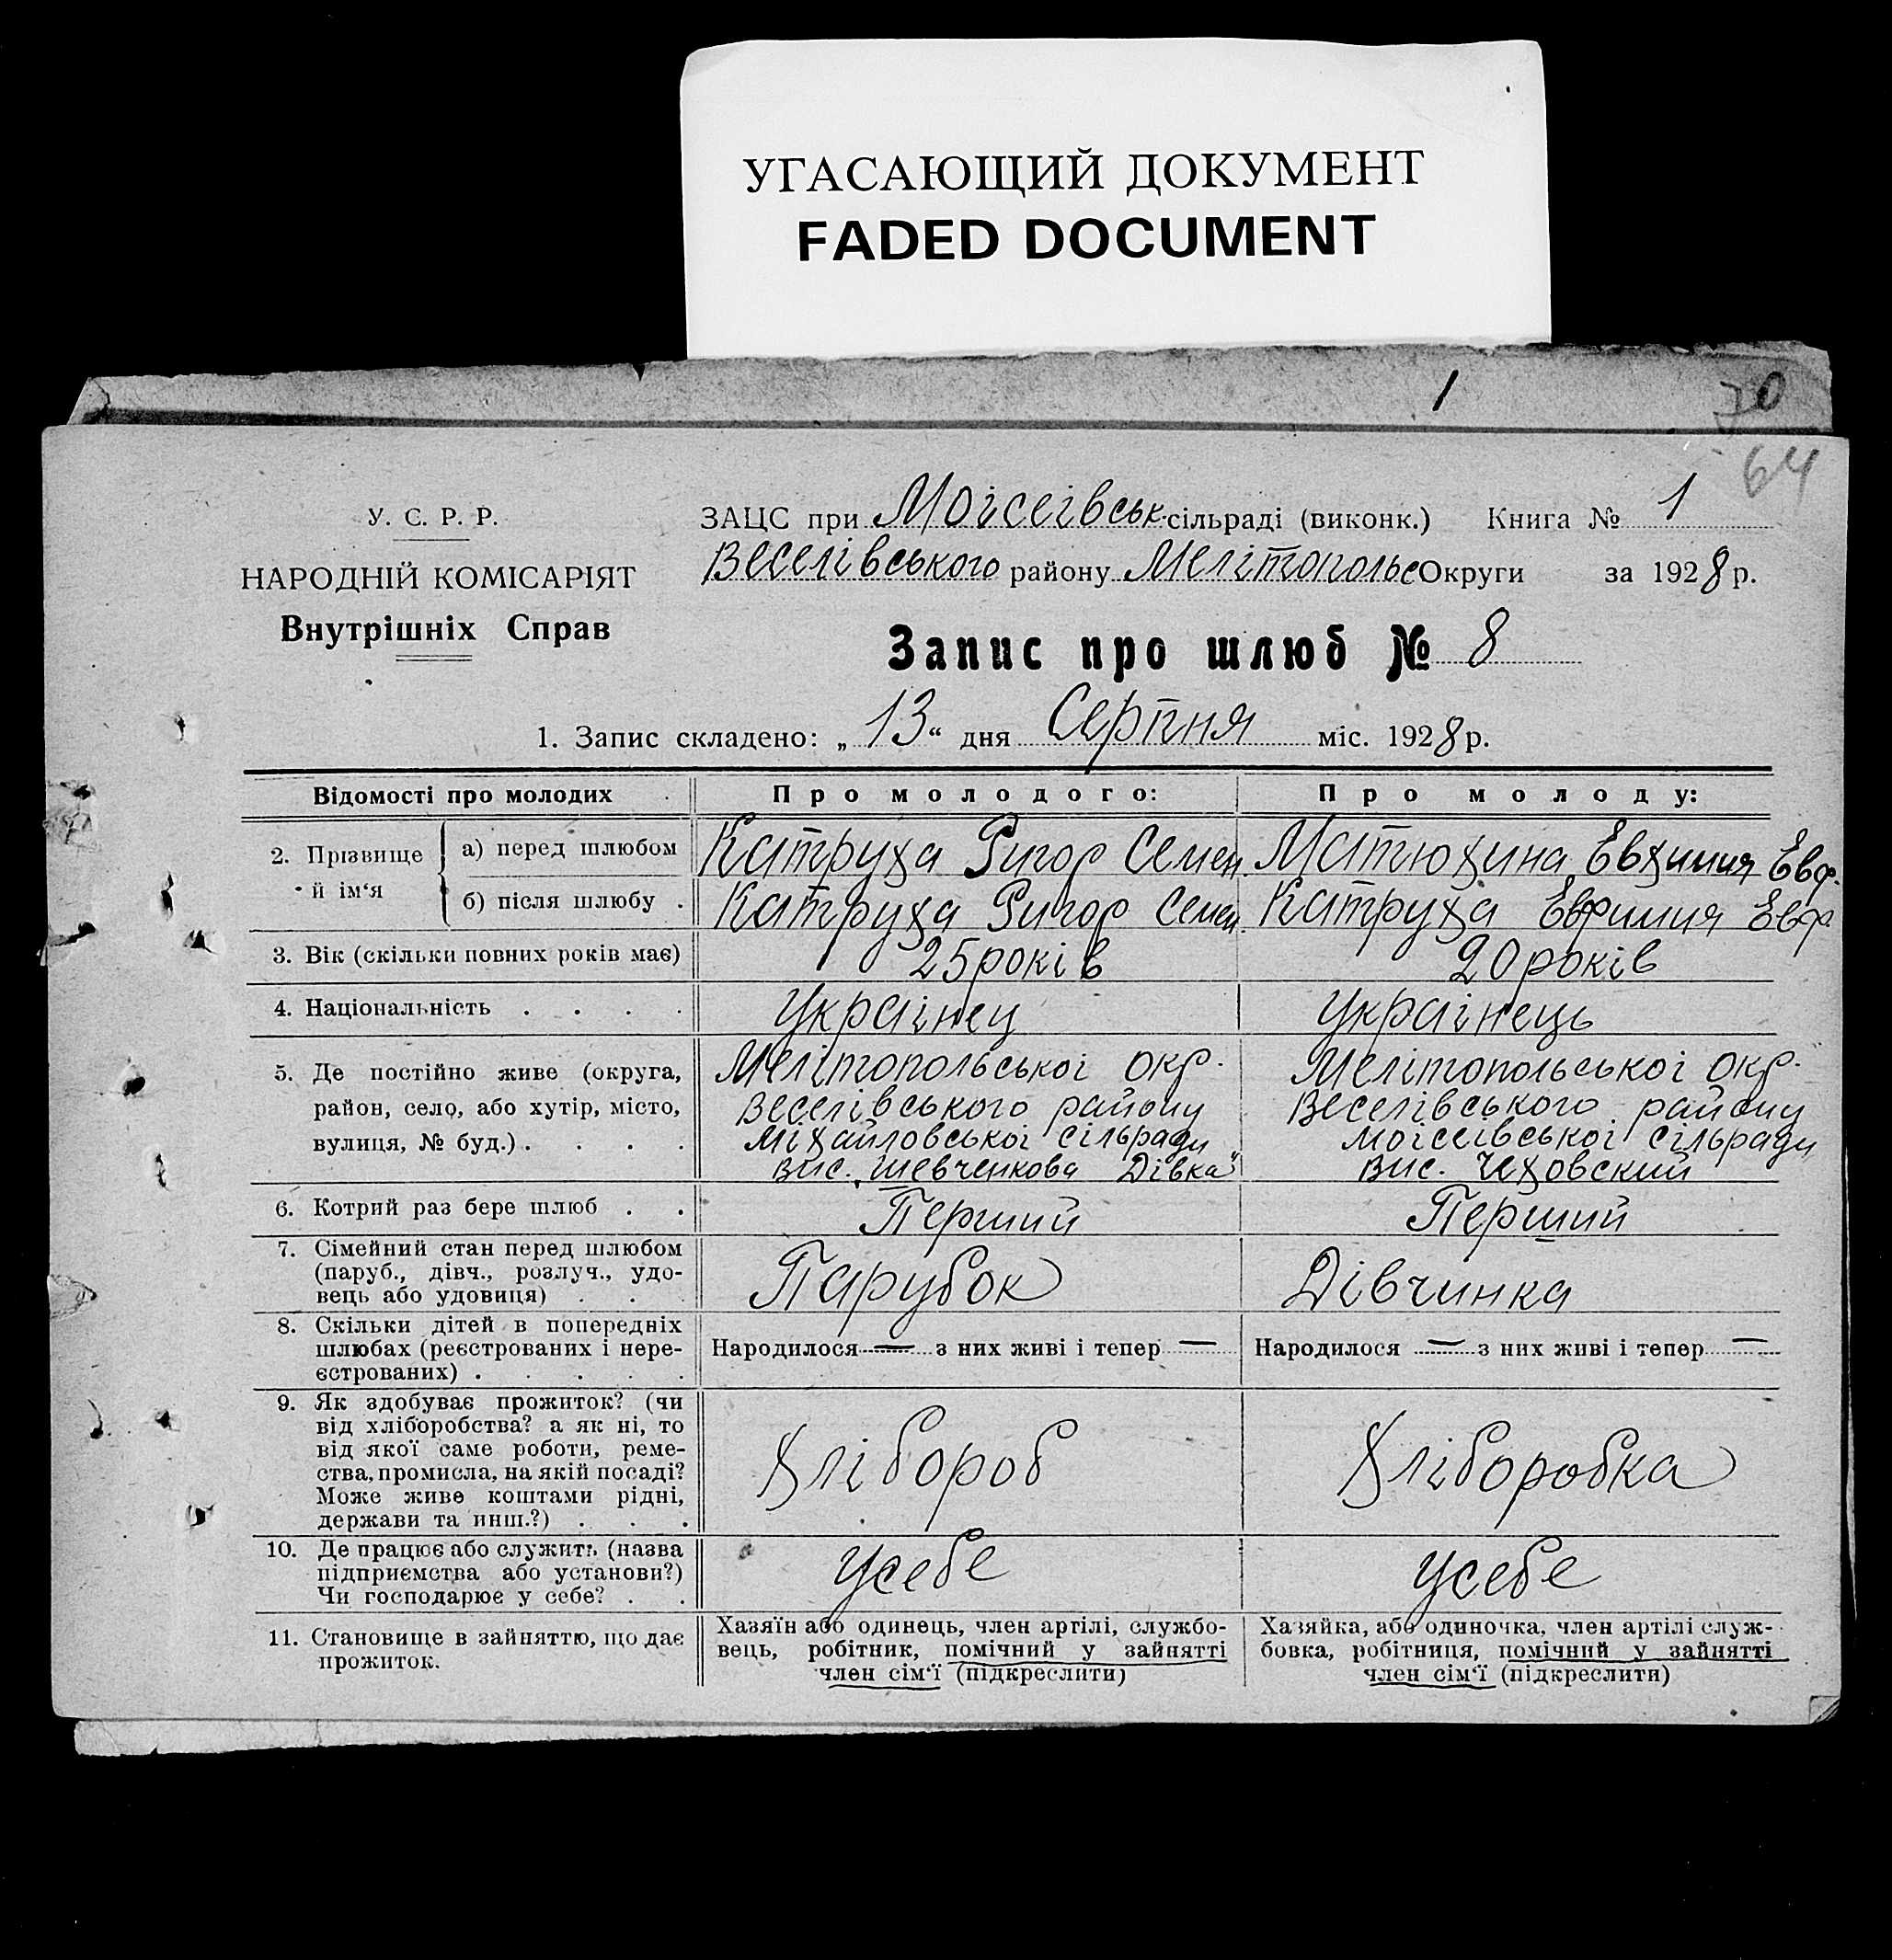 УГАСАЮЩИЙ ДОКУМЕНТ
FADED DOCUMENT
1 70
64
У. С. Р. Р.
НАРОДНІЙ КОМІСАРІЯТ
Внутрішніх Справ
ЗАЦС при Моісеівськ. сільраді (виконк.) Книга № 1
Веселівського району Мелітопольс Округи за 1928 р.
Запис про шлюб № 8
1. Запис складено: „13“ дня Серпня міс. 1928 р.
Відомості про молодих Про молодого: Про молоду:
2. Прізвище й ім‘я
а) перед шлюбом Катруха Ригор Семен. Матюхина Евхимия Евф.
б) після шлюбу . Катруха Ригор Семен. Катруха Евфимия Евф.
3. Вік (скільки повних років має) 25 років 20 років
4. Національність . . . . Украінец Украінець
5. Де постійно живе (округа, Мелітопольськоі окр. Мелітопольськоі окр.
район, село, або хутір, місто, Веселівського району Веселівського району
вулиця, № буд.) . . . . Міхайловськоі сільради Моісеівськоі сільради
вис. „Шевченкова Дівка“ вис. Чеховский
6. Котрий раз бере шлюб . . Перший Перший
7. Сімейний стан перед шлюбом
(паруб., дівч., розлуч., удо-
вець або удовиця) . . . Парубок Дівчинка
8. Скільки дітей в попередніх
шлюбах (реєстрованих і нере-
єстрованих) . . . . . Народилося — з них живі і тепер — Народилося — з них живі і тепер —
9. Як здобуває прожиток? (чи
від хліборобства? а як ні, то
від якої саме роботи, реме-
ства, промисла, на якій посаді?
Може живе коштами рідні,
держави та инш.?) . . . Хлібороб Хліборобка
10. Де працює або служить (назва
підприємства або установи?)
Чи господарює у себе? . . Усебе Усебе
11. Становище в зайняттю, що дає
прожиток.
Хазяїн або одинець, член артілі, службо-
вець, робітник, помічний у зайнятті
член сім‘ї (підкреслити)
Хазяйка, або одиночка, член артілі служ-
бовка, робітниця, помічний у зайнятті
член сім‘ї (підкреслити)